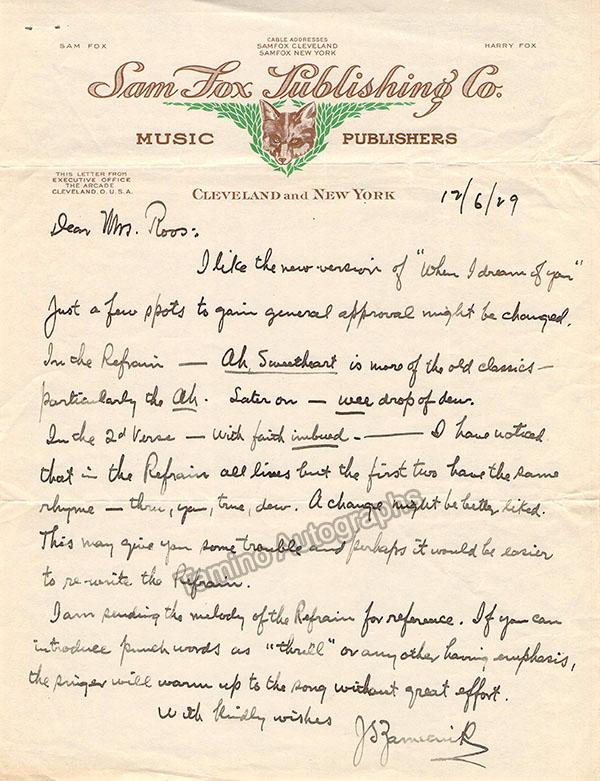 SAM FOX
CABLE ADDRESSES
SAMFOX CLEVELAND
SAMFOX NEW YORK
HARRY FOX
Sam Fox Publishing Co.
MUSIC PUBLISHERS
THIS LETTER FROM
EXECUTIVE OFFICE
THE ARCADE
CLEVELAND, O. U.S.A.
CLEVELAND and NEW YORK
12/6/29
Dear Mrs. Roos:
I like the new version of "When I dream of you"
Just a few spots to gain general approval might be changed.
In the Refrain — Ah, Sweetheart is more of the old classics —
particularly the Ah. Later on — wee drop of dew.
In the 2d Verse — With faith imbued. — I have noticed
that in the Refrain all lines but the first two have the same
rhyme — thru, you, true, dew. A change might be better liked.
This may give you some trouble and perhaps it would be easier
to re-write the Refrain.
I am sending the melody of the Refrain for reference. If you can
introduce punch words as "thrill" or any other having emphasis,
the singer will warm up to the song without great effort.
With kindly wishes
J S Zamecnik
Tamino Autographs